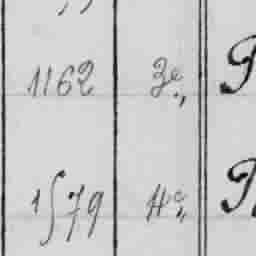 1162 3e
1579 4e